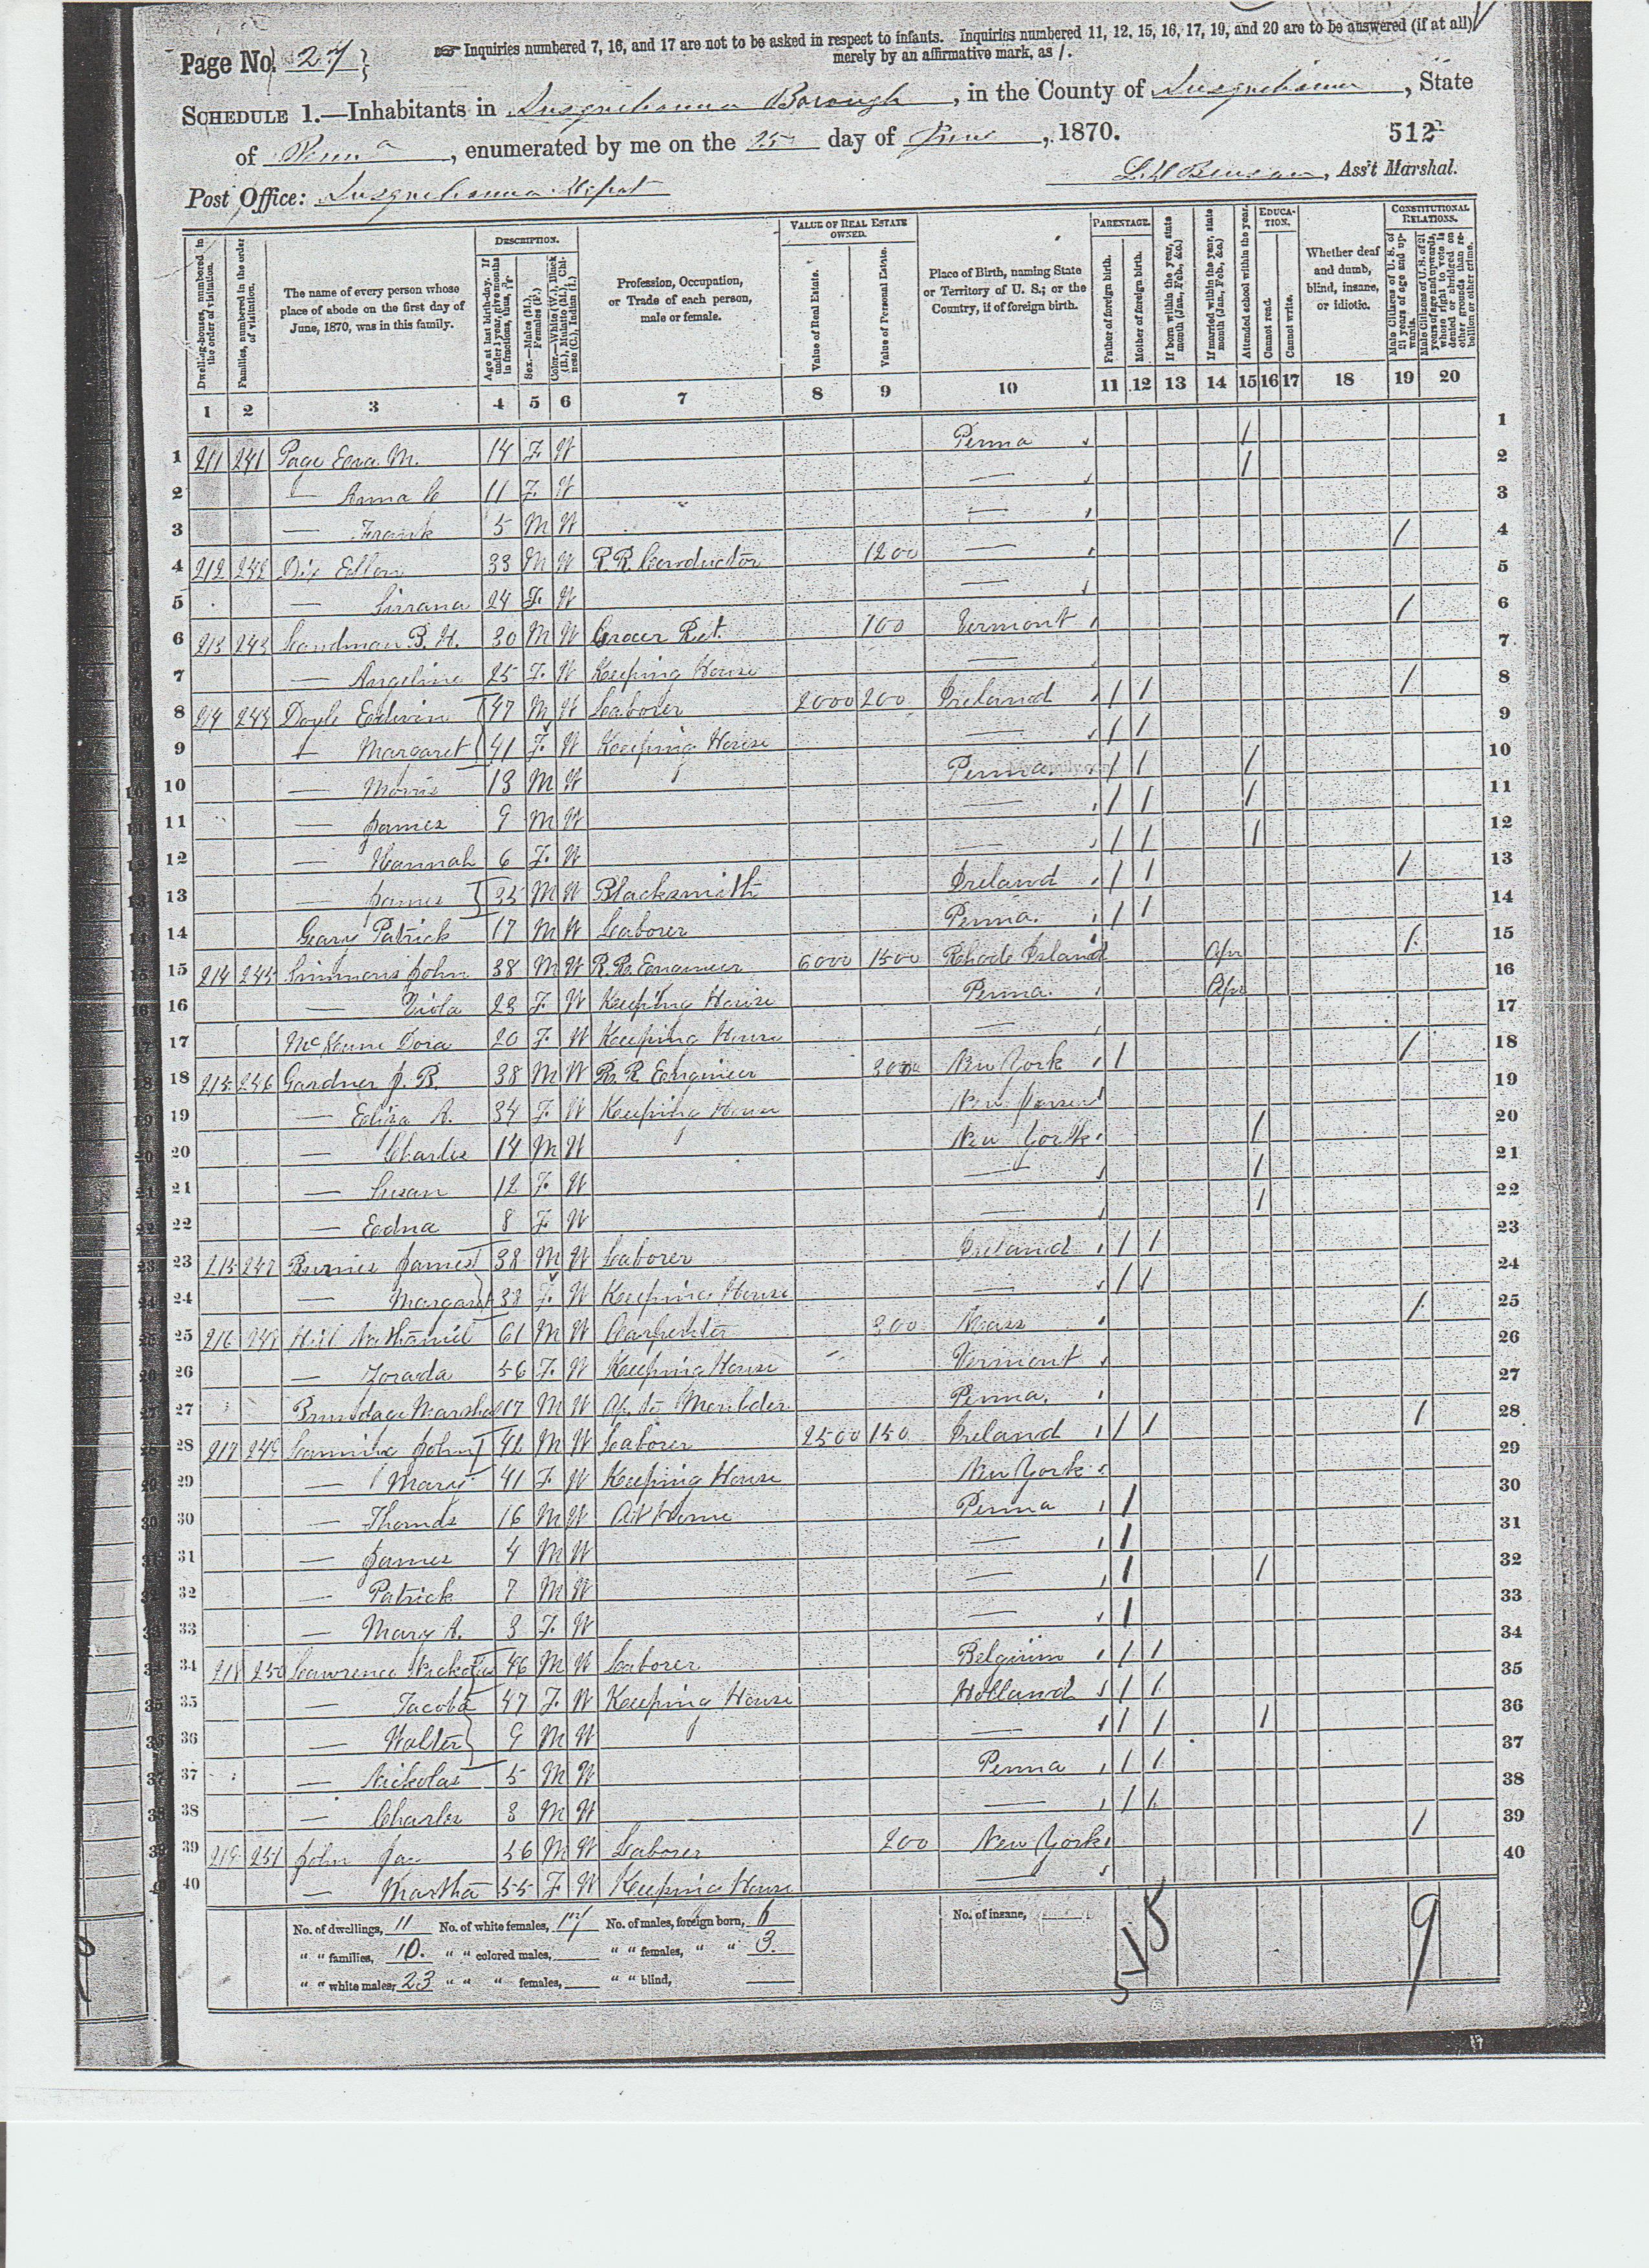 Page No. 27
☞ Inquiries numbered 7, 16, and 17 are not to be asked in respect to infants. Inquiries numbered 11, 12, 15, 16, 17, 19, and 20 are to be answered (if at all)
merely by an affirmative mark, as /.
SCHEDULE 1.—Inhabitants in Susquehanna Borough, in the County of Susquehanna, State
of Penna, enumerated by me on the 25 day of June, 1870.
512
Post Office: Susquehanna Depot
L. H. Benson, Ass't Marshal.
Dwelling-houses, numbered in the order of visitation.
Families, numbered in the order of visitation.
The name of every person whose place of abode on the first day of June, 1870, was in this family.
DESCRIPTION.
Age at last birth-day. If under 1 year, give months in fractions, thus,
Sex.—Males (M.), Females (F.)
Color.—White (W.), Black (B.), Mulatto (M.), Chinese (C.), Indian (I.)
Profession, Occupation, or Trade of each person, male or female.
VALUE OF REAL ESTATE OWNED.
Value of Real Estate.
Value of Personal Estate.
Place of Birth, naming State or Territory of U. S.; or the Country, if of foreign birth.
PARENTAGE.
Father of foreign birth.
Mother of foreign birth.
If born within the year, state month (Jan., Feb., &c.)
If married within the year, state month (Jan., Feb., &c.)
Attended school within the year.
EDUCATION.
Cannot read.
Cannot write.
Whether deaf and dumb, blind, insane, or idiotic.
CONSTITUTIONAL RELATIONS.
Male Citizens of U. S. of 21 years of age and upwards.
Male Citizens of U. S. of 21 years of age and upwards, whose right to vote is denied or abridged on other grounds than rebellion or other crime.
1 2 3 4 5 6 7 8 9 10 11 12 13 14 15 16 17 18 19 20
1 211 241 Page M. 14 F W Penna / 1
2 — Anna C 11 F W — / 2
3 — Frank 5 M W — 3
4 212 242 Dix 33 M W R. R. Conductor 1200 — / 4
5 — 24 F W — 5
6 213 243 B. H. 30 M W Grocer Ret. 100 Vermont / 6
7 — Angeline 25 F W Keeping House — 7
8 214 244 Doyle Edwin 47 M W Laborer 2000 200 Ireland / / / 8
9 — Margaret 41 F W Keeping House — / / 9
10 — Morris 13 M W Penna / / / 10
11 — James 9 M W — / / / 11
12 — Hannah 6 F W — / / / 12
13 — James 35 M W Blacksmith Ireland / / / 13
14 Geary Patrick 17 M W Laborer Penna. / / 14
15 214 245 Simmons John 38 M W R. R. Engineer 6000 1500 Rhode Island Apr / 15
16 — Viola 23 F W Keeping House Penna. Apr 16
17 McKune Dora 20 F W Keeping House — 17
18 215 246 Gardner J. R. 38 M W R. R. Engineer New York / / 18
19 — Eliza A. 34 F W Keeping House New Jersey 19
20 — Charles 14 M W New York / 20
21 — Susan 12 F W — / 21
22 — Edna 8 F W — / 22
23 215 247 James 38 M W Laborer Ireland / / 23
24 — Margaret 38 F W Keeping House — / / 24
25 216 248 Hill Nathaniel 61 M W Carpenter 300 Mass / 25
26 — Zorada 56 F W Keeping House Vermont 26
27 Brundage Marshal 17 M W Ap. to Moulder Penna. 27
28 217 249 John 42 M W Laborer 2500 150 Ireland / / / 28
29 — Mary 41 F W Keeping House New York 29
30 — Thomas 16 M W At Home Penna / 30
31 — James 4 M W — / 31
32 — Patrick 7 M W — / / 32
33 — Mary A. 3 F W — / 33
34 218 250 Lawrence Nickolas 46 M W Laborer Belgium / / 34
35 — Jacoba 47 F W Keeping House Holland / / 35
36 — Walter 9 M W — / / / 36
37 — Nickolas 5 M W Penna / / 37
38 — Charles 3 M W — / / 38
39 219 251 John 56 M W Laborer 200 New York / 39
40 — Martha 55 F W Keeping House — 40
No. of dwellings, 11 No. of white females, 17 No. of males, foreign born, 6 No. of insane,
" " families, 10. " " colored males, " " females, " " 3.
" " white males, 23 " " " females, " " blind,
15
9